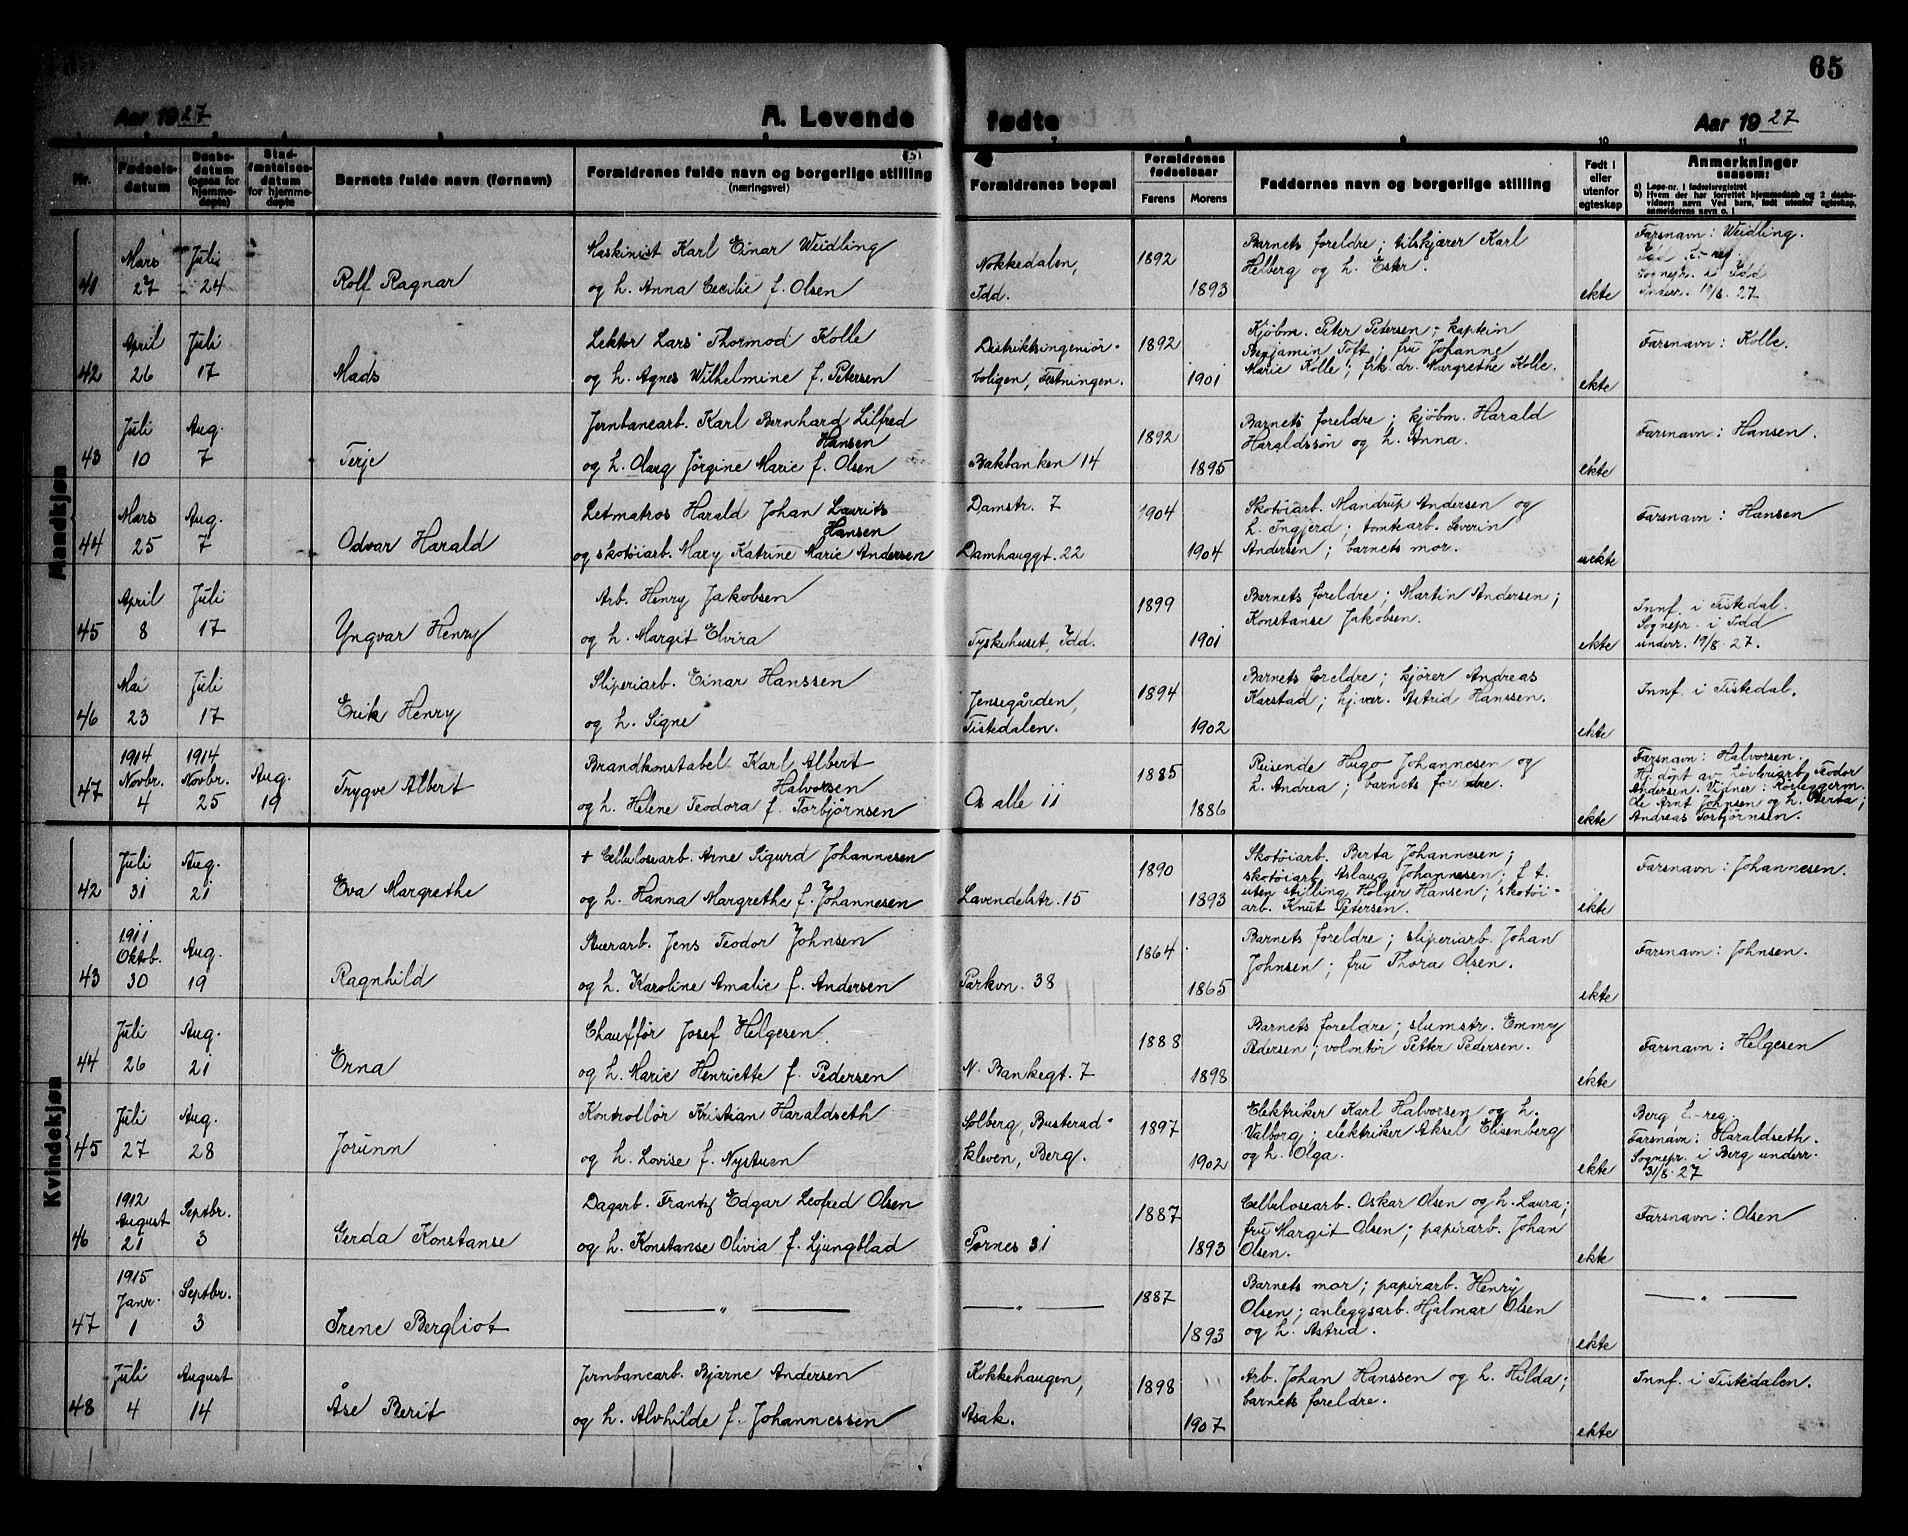 65
Aar 1927
A. Levende fødte
Aar 1927
7 8 9 10 11
Nr.
Fødsels-
datum
Daabs-
datum
(ogsaa for
hjemme-
døpte)
Stad-
fæstelses-
datum
for hjemme-
døpte
Barnets fulde navn (førnavn)
Forældrenes fulde navn og borgerlige stilling
(næringsvei)
Forældrenes bopæl
Forældrenes
fødselsaar
Farens Morens
Faddernes navn og borgerlige stilling
Født i
eller
utenfor
egteskap
Anmerkninger
saasom:
a) Løpe-nr. i fødselsregistret
b) Hvem der har forrettet hjemmedaab og 2 daabs-
vidners navn Ved barn, født utenfor egteskap,
anmelderens navn o. l
Mandkjøn
41
Mars
27
Juli
24
Rolf Ragnar
Maskinist Karl Einar Weidling
og h. Anna Cecilie f. Olsen
Nokkedalen,
Idd.
1892
1893
Barnets foreldre; tilskjærer Karl
Helberg og h. Ester.
ekte
Farsnavn: Weidling.
Idd L-reg.
Sognepr. i Idd
Underr. 19/8. 27
42
April
26
Juli
17
Mads
Lektor Lars Thormod Kolle
og h. Agnes Wilhelmine f. Petersen
Distriktsingeniør-
boligen, Festningen.
1892
1901
Kjøbm. Peter Petersen; kaptein
Benjamin Toft; fru Johanne
Marie Kolle; frk. dr. Margrethe Kolle.
ekte
Farsnavn: Kolle.
43
Juli
10
Aug.
7
Terje
Jernbanearb. Karl Bernhard Lilfred
Hansen
og h. Olarg Jørgine Marie f. Olsen
Bakbanken 14
1892
1895
Barnets foreldre; kjøbm. Harald
Haraldssøn og h. Anna.
ekte
Farsnavn: Hansen.
44
Mars
25
Aug.
7
Odvar Harald
Letmatros Harald Johan Laurits
Hansen
og skotøiarb. Mary Katrine Marie Andersen
Damstr. 7
Damhauggt. 22
1904
1904
Skotøiarb. Mandrup Andersen og
h. Ingjerd; tomtearb. Severin
Andersen; barnets mor.
uekte
Farsnavn: Hansen
45
April
8
Juli
17
Yngvar Henry
Arb. Henry Jakobsen
og h. Margit Elvira
Tyskehuset, Idd.
1899
1901
Barnets foreldre; Martin Andersen;
Konstanse Jakobsen.
ekte
Innf. i Tistedal.
Sognepr. i Idd
underr. 19/8. 27.
46
Mai
23
Juli
17
Erik Henry
Sliperiarb. Einar Hanssen
og h. Signe
Jensegården,
Tistedalen.
1894
1902
Barnets foreldre; kjører Andreas
Karstad; hj.vær. Astrid Hanssen.
ekte
Innf. i Tistedal.
47
1914
Novbr.
4
1914
Novbr.
25
Aug.
19
Trygve Albert
Brandkonstabel Karl Albert
Halvorsen
og h. Helene Teodora f. Torbjørnsen
Os alle 11
1885
1886
Reisende Hugo Johannesen og
h. Andrea; barnets foreldre.
ekte
Farsnavn: Halvorsen.
Hj. døpt av Løvleviarb. Teodor
Andersen. Vidner: Rørleggerm.
de Arnt Johnsen og h. Berta;
Andreas Torbjørnsen.
Kvindekjøn
42
Juli
31
Aug.
21
Eva Margrethe
+ Cellulosearb. Arne Sigurd Johannesen
og h. Hanna Margrethe f. Johannesen
Lavendelstr. 15
1890
1893
Skotøiarb. Berta Johannesen;
skotøiarb. Aslaug Johannesen; f. t.
uten stilling Holger Hansen; skotøi-
arb. Knut Petersen.
ekte
Farsnavn: Johannesen.
43
1911
Oktb.
30
Aug.
19
Ragnhild
Stuerarb. Jens Teodor Johnsen
og h. Karoline Amalie f. Andersen
Parkvn. 38
1864
1865
Barnets foreldre; sliperiarb. Johan
Johnsen; fru Thora Olsen.
ekte
Farsnavn: Johnsen.
44
Juli
26
Aug.
21
Erna
Chauffør Josef Helgesen.
og h. Marie Henriette f. Pedersen
N. Bankegt. 7
1888
1898
Barnets foreldre; slumstr. Emmy
Pedersen; volontør Petter Pedersen.
ekte
Farsnavn: Helgesen
45
Juli
27
Aug.
28
Jorunn
Kontrollør Kristian Haraldseth
og h. Lovise f. Nystuen
Solberg, Busterud-
kleven, Berg.
1897
1902
Elektriker Karl Halvorsen og h.
Valborg; elektriker Aksel Elisenberg
og h. Olga.
ekte
Berg L.-reg.
Farsnavn: Haraldseth.
Sognepr. i Berg underr.
31/8. 27
46
1912
August
21
Septbr.
3
Gerda Konstanse
Dagarb. Frantz Edgar Leofred Olsen
og h. Konstanse Olivia f. Ljungblad
Tornes 31
1887
1893
Cellulosearb. Oskar Olsen og h. Laura;
fru Margit Olsen; papirarb. Johan
Olsen.
ekte
Farsnavn: Olsen
47
1915
Janr.
1
Septbr.
3
Irene Bergliot
— " —
— " —
1887
1893
Barnets mor; papirarb. Henry
Olsen; anleggsarb. Hjalmar Olsen
og h. Astrid.
ekte
— " —
48
Juli
4
August
14
Åse Berit
Jernbanearb. Bjarne Andersen
og h. Alvhilde f. Johannessen
Kokkehaugen,
Asak.
1898
1907
Arb. Johan Hanssen og h. Hilda;
barnets foreldre.
ekte
Innf. i Tistedalen.